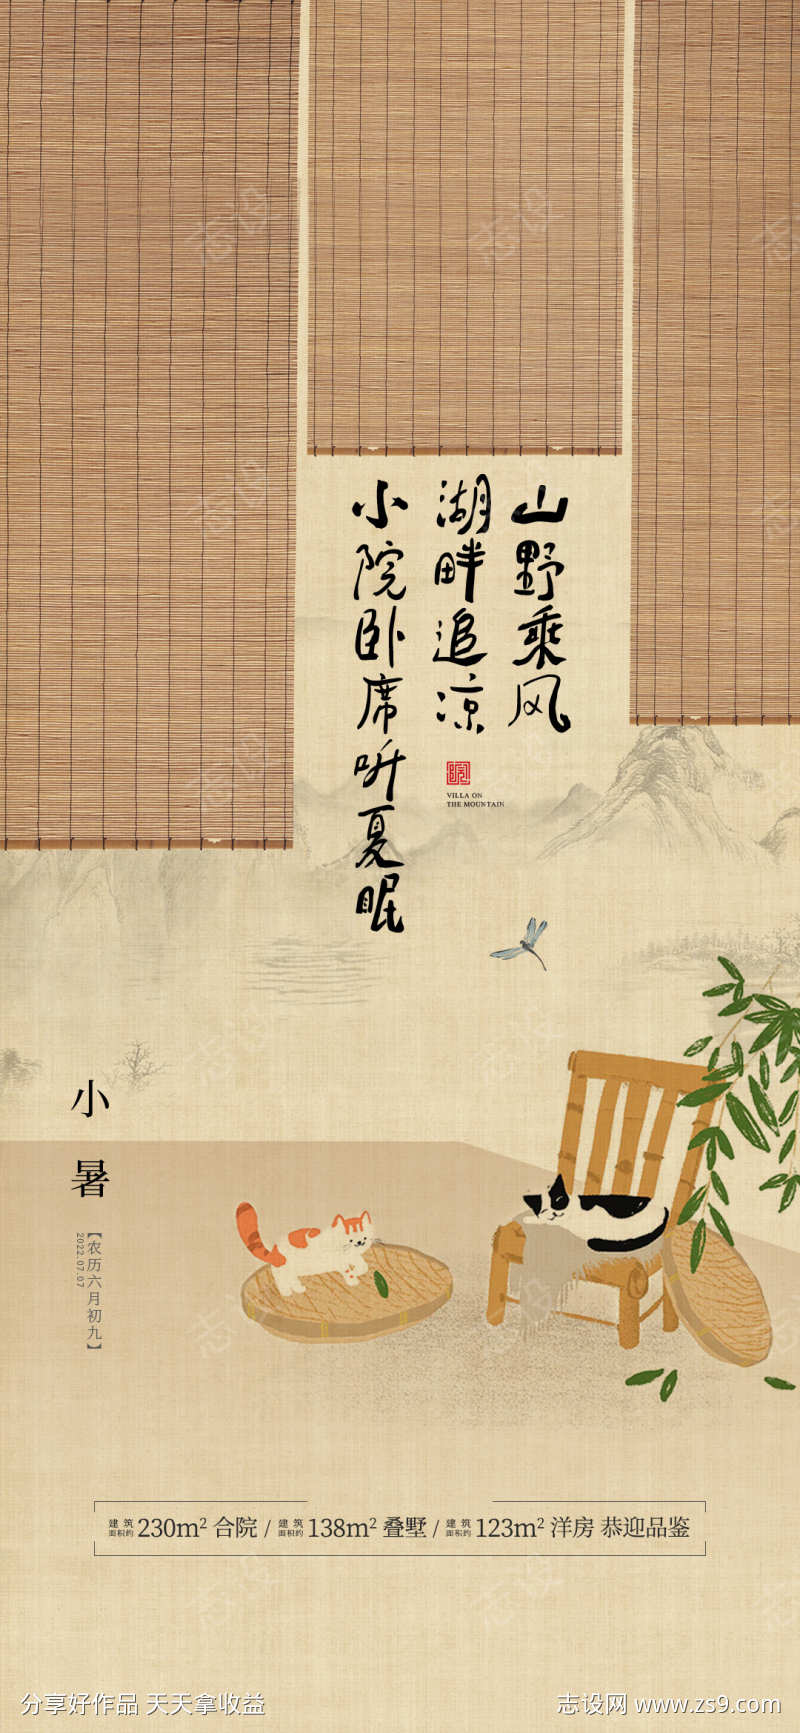 山野乘风
湖畔追凉
小院卧席听夏眠
院
VILLA ON
THE MOUNTAIN
小暑
【农历六月初九】
2022.07.07
建筑面积约230m² 合院 / 建筑面积约138m² 叠墅 / 建筑面积约123m² 洋房 恭迎品鉴
分享好作品 天天拿收益
志设网 www.zs9.com
志设